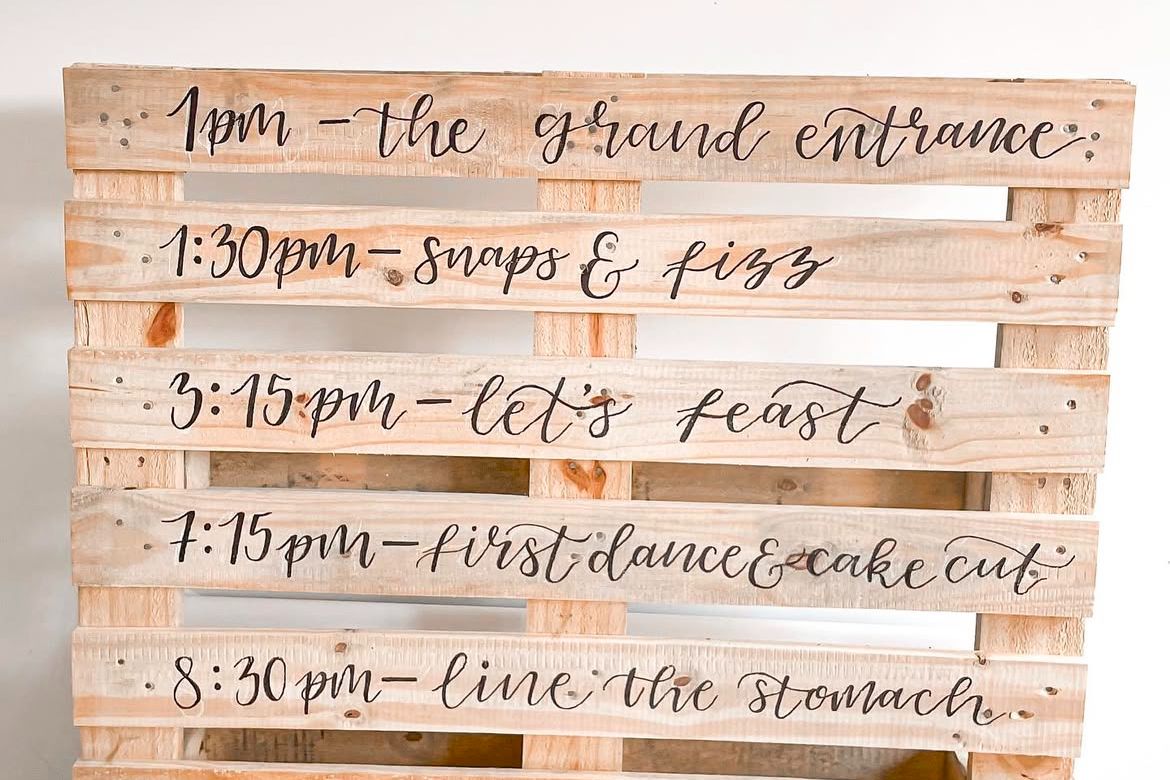 1pm - the grand entrance
1:30pm - snaps & fizz
3:15pm - let's feast
7:15pm - first dance & cake cut
8:30pm - line the stomach